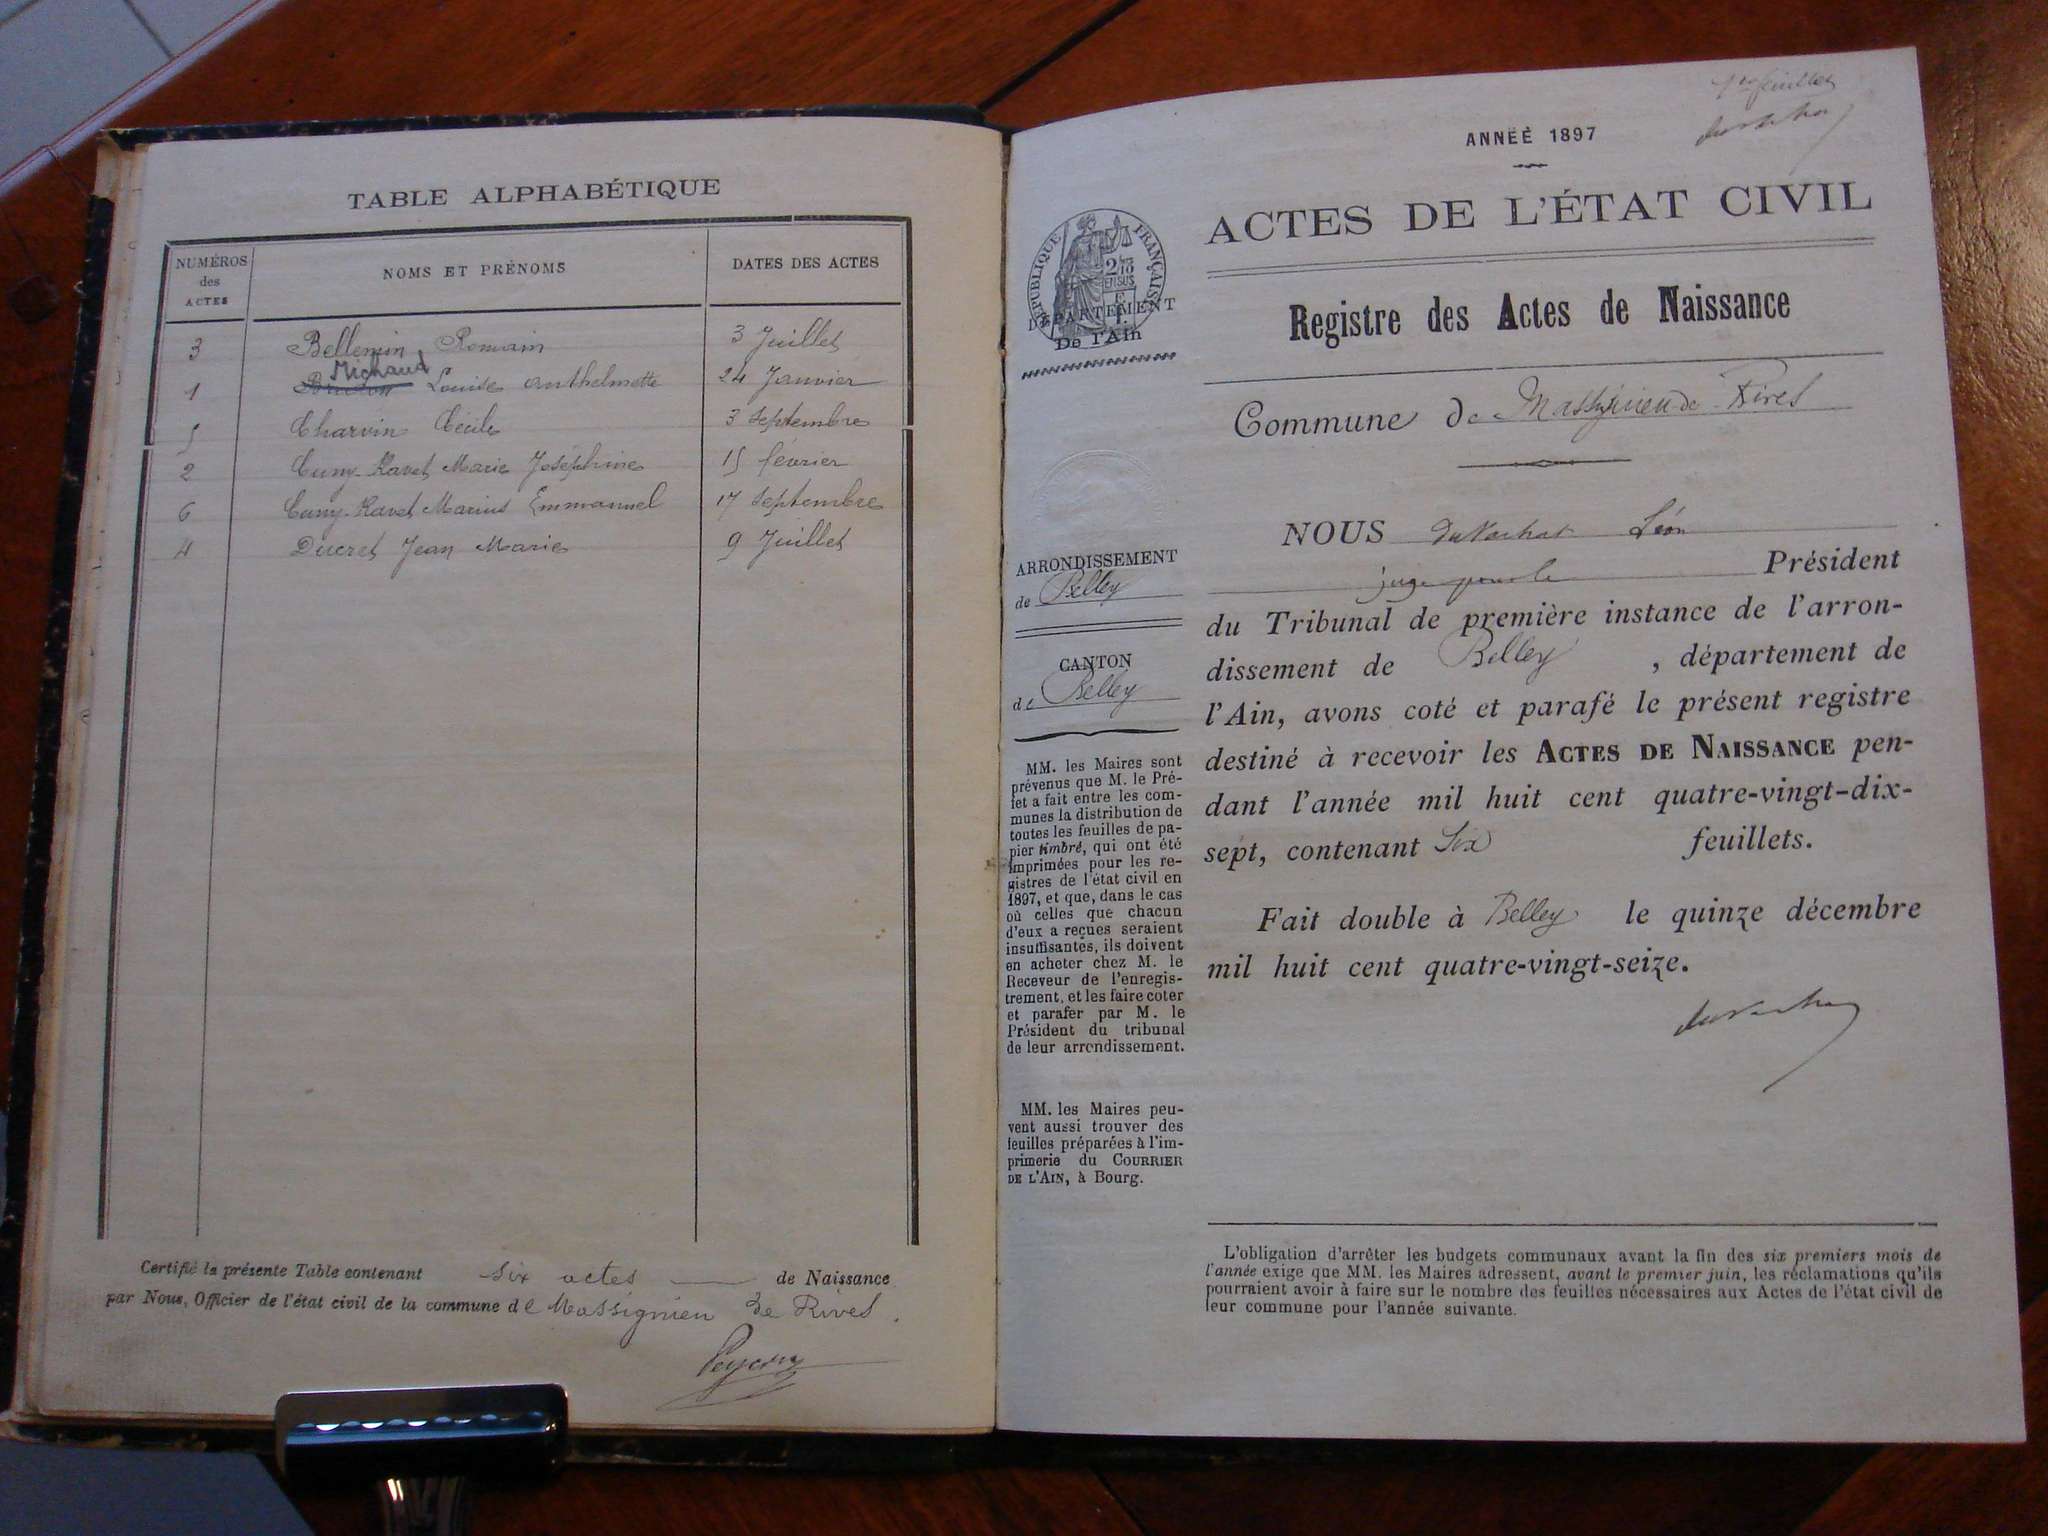 TABLE ALPHABÉTIQUE
NUMÉROS
des
ACTES
NOMS ET PRÉNOMS
DATES DES ACTES
3 Bellemin Romain 3 Juillet
Michaud
1 Louise Anthelmette 24 Janvier
5 Charvin Cécile 3 Septembre
2 Cuny-Ravet Marie Joséphine 15 février
6 Cuny-Ravet Marius Emmanuel 17 Septembre
4 Ducret Jean Marie 9 Juillet
Certifié la présente Table contenant six actes de Naissance
par Nous, Officier de l'état civil de la commune de Massignieu de Rives.
1er feuillet
ANNÉE 1897
ACTES DE L'ÉTAT CIVIL
RÉPUBLIQUE FRANÇAISE
2/10
EN SUS
DÉPARTEMENT
De l'Ain
Registre des Actes de Naissance
Commune de Massignieu de Rives
ARRONDISSEMENT
de Belley
CANTON
de Belley
MM. les Maires sont
prévenus que M. le Pré-
fet a fait entre les com-
munes la distribution de
toutes les feuilles de pa-
pier timbré, qui ont été
imprimées pour les re-
gistres de l'état civil en
1897, et que, dans le cas
où celles que chacun
d'eux a reçues seraient
insuffisantes, ils doivent
en acheter chez M. le
Receveur de l'enregis-
trement, et les faire coter
et parafer par M. le
Président du tribunal
de leur arrondissement.
MM. les Maires peu-
vent aussi trouver des
feuilles préparées à l'im-
primerie du COURRIER
DE L'AIN, à Bourg.
NOUS Léon
juge pour le Président
du Tribunal de première instance de l'arron-
dissement de Belley, département de
l'Ain, avons coté et parafé le présent registre
destiné à recevoir les ACTES DE NAISSANCE pen-
dant l'année mil huit cent quatre-vingt-dix-
sept, contenant Six feuillets.
Fait double à Belley le quinze décembre
mil huit cent quatre-vingt-seize.
L'obligation d'arrêter les budgets communaux avant la fin des six premiers mois de
l'année exige que MM. les Maires adressent, avant le premier juin, les réclamations qu'ils
pourraient avoir à faire sur le nombre des feuilles nécessaires aux Actes de l'état civil de
leur commune pour l'année suivante.